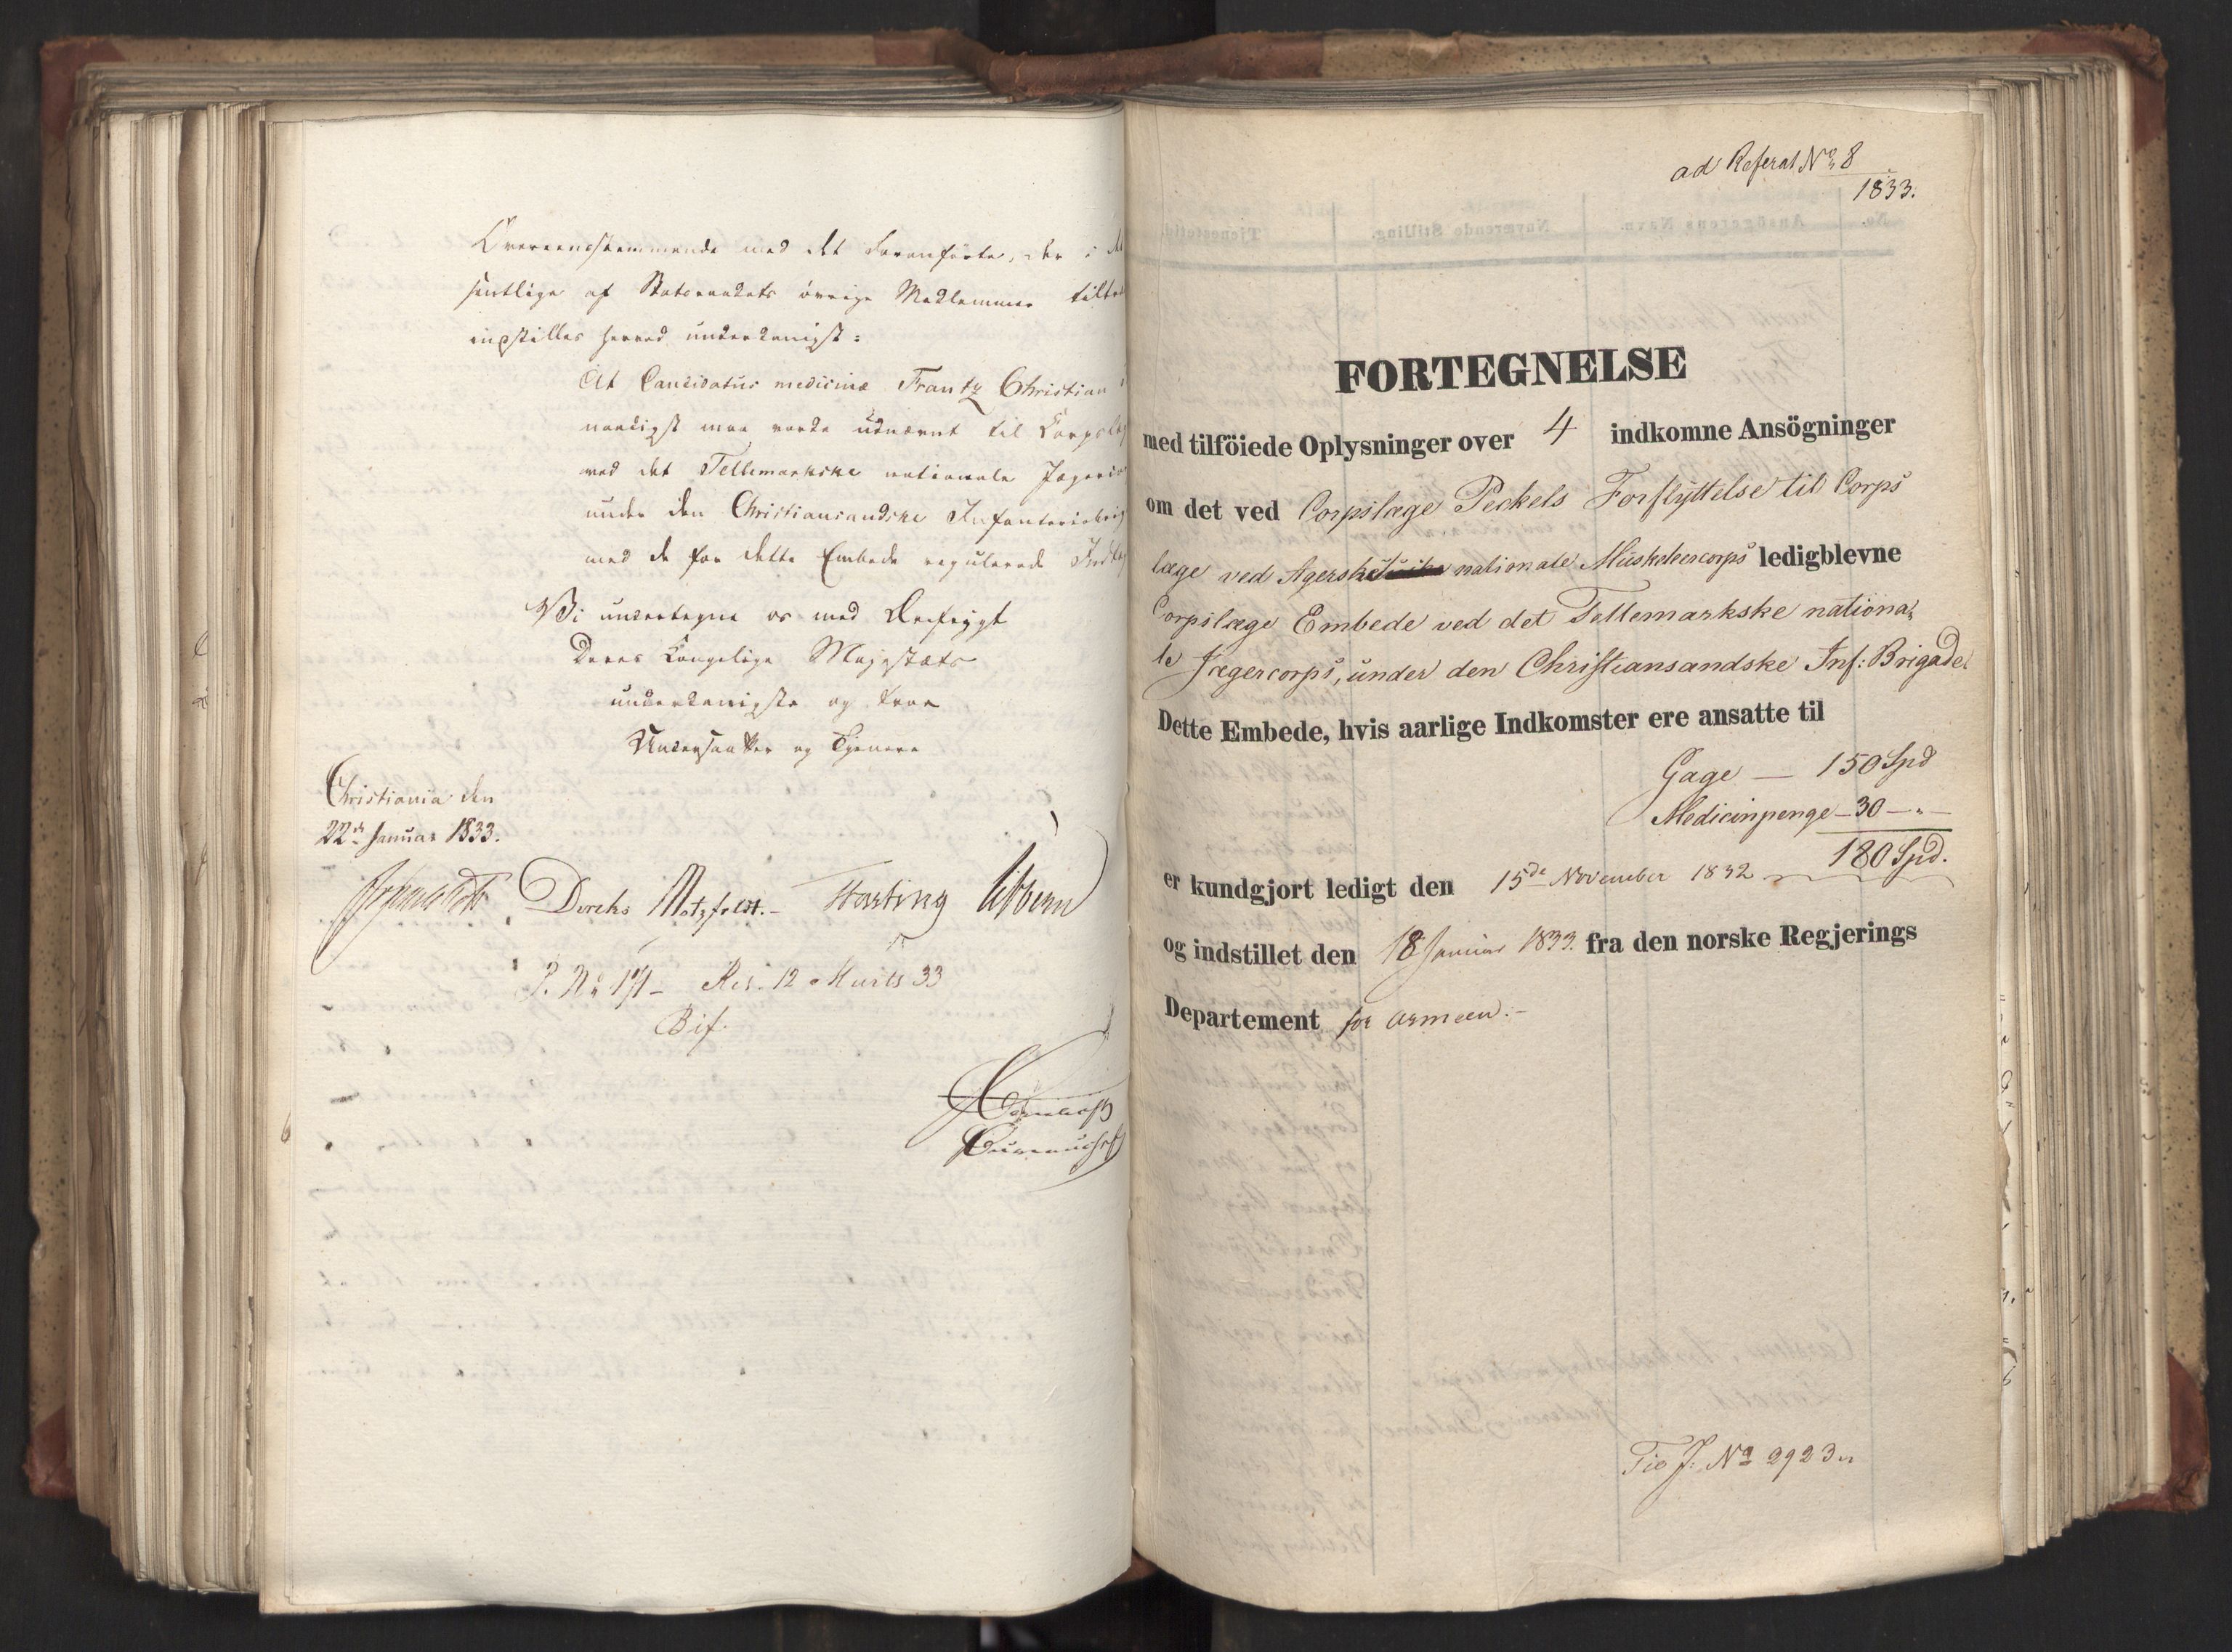 Overeensstemmende med det Foranførte, der i det
sentlige af Statsraadets övrige Medlemmer tiltræ
indstilles herved underdanigst:
At Candidatus medicinæ Frantz Christian
naadigst maa vorde udnævnt til Corpslæg
ved det Tellemarkske nationale Jægerco
under den Christiansandske Infanteriebrig
med de for dette Embede regulerede Indtæg
Vi undertegne os med Ærefrygt
Deres Kongelige Majestæts
underdanigste og troe
Undersaatter og Tjenere
Christiania den
22de Januar 1833.
Diriks Motzfeldt. Hasting Sibbern
P. No 171 - Res. 12 Marts 33
Bif.
ad Referat No 8
1833.
FORTEGNELSE
med tilföiede Oplysninger over 4 indkomne Ansögninger
om det ved Corpslæge Peckels Forflyttelse til Corps
læge ved Agershuske nationale Musketeercorps ledigblevne
Corpslæge Embede ved det Tellemarkske nationa-
le Jægercorps, under den Christiansandske Inf: Brigade.
Dette Embede, hvis aarlige Indkomster ere ansatte til
Gage — 150 Spd
Medicinpenge - 30 - " -
180 Spd.
er kundgjort ledigt den 15de November 1832
og indstillet den 18 Januar 1833. fra den norske Regjerings
Departement for Armeen.-
J: No 2923